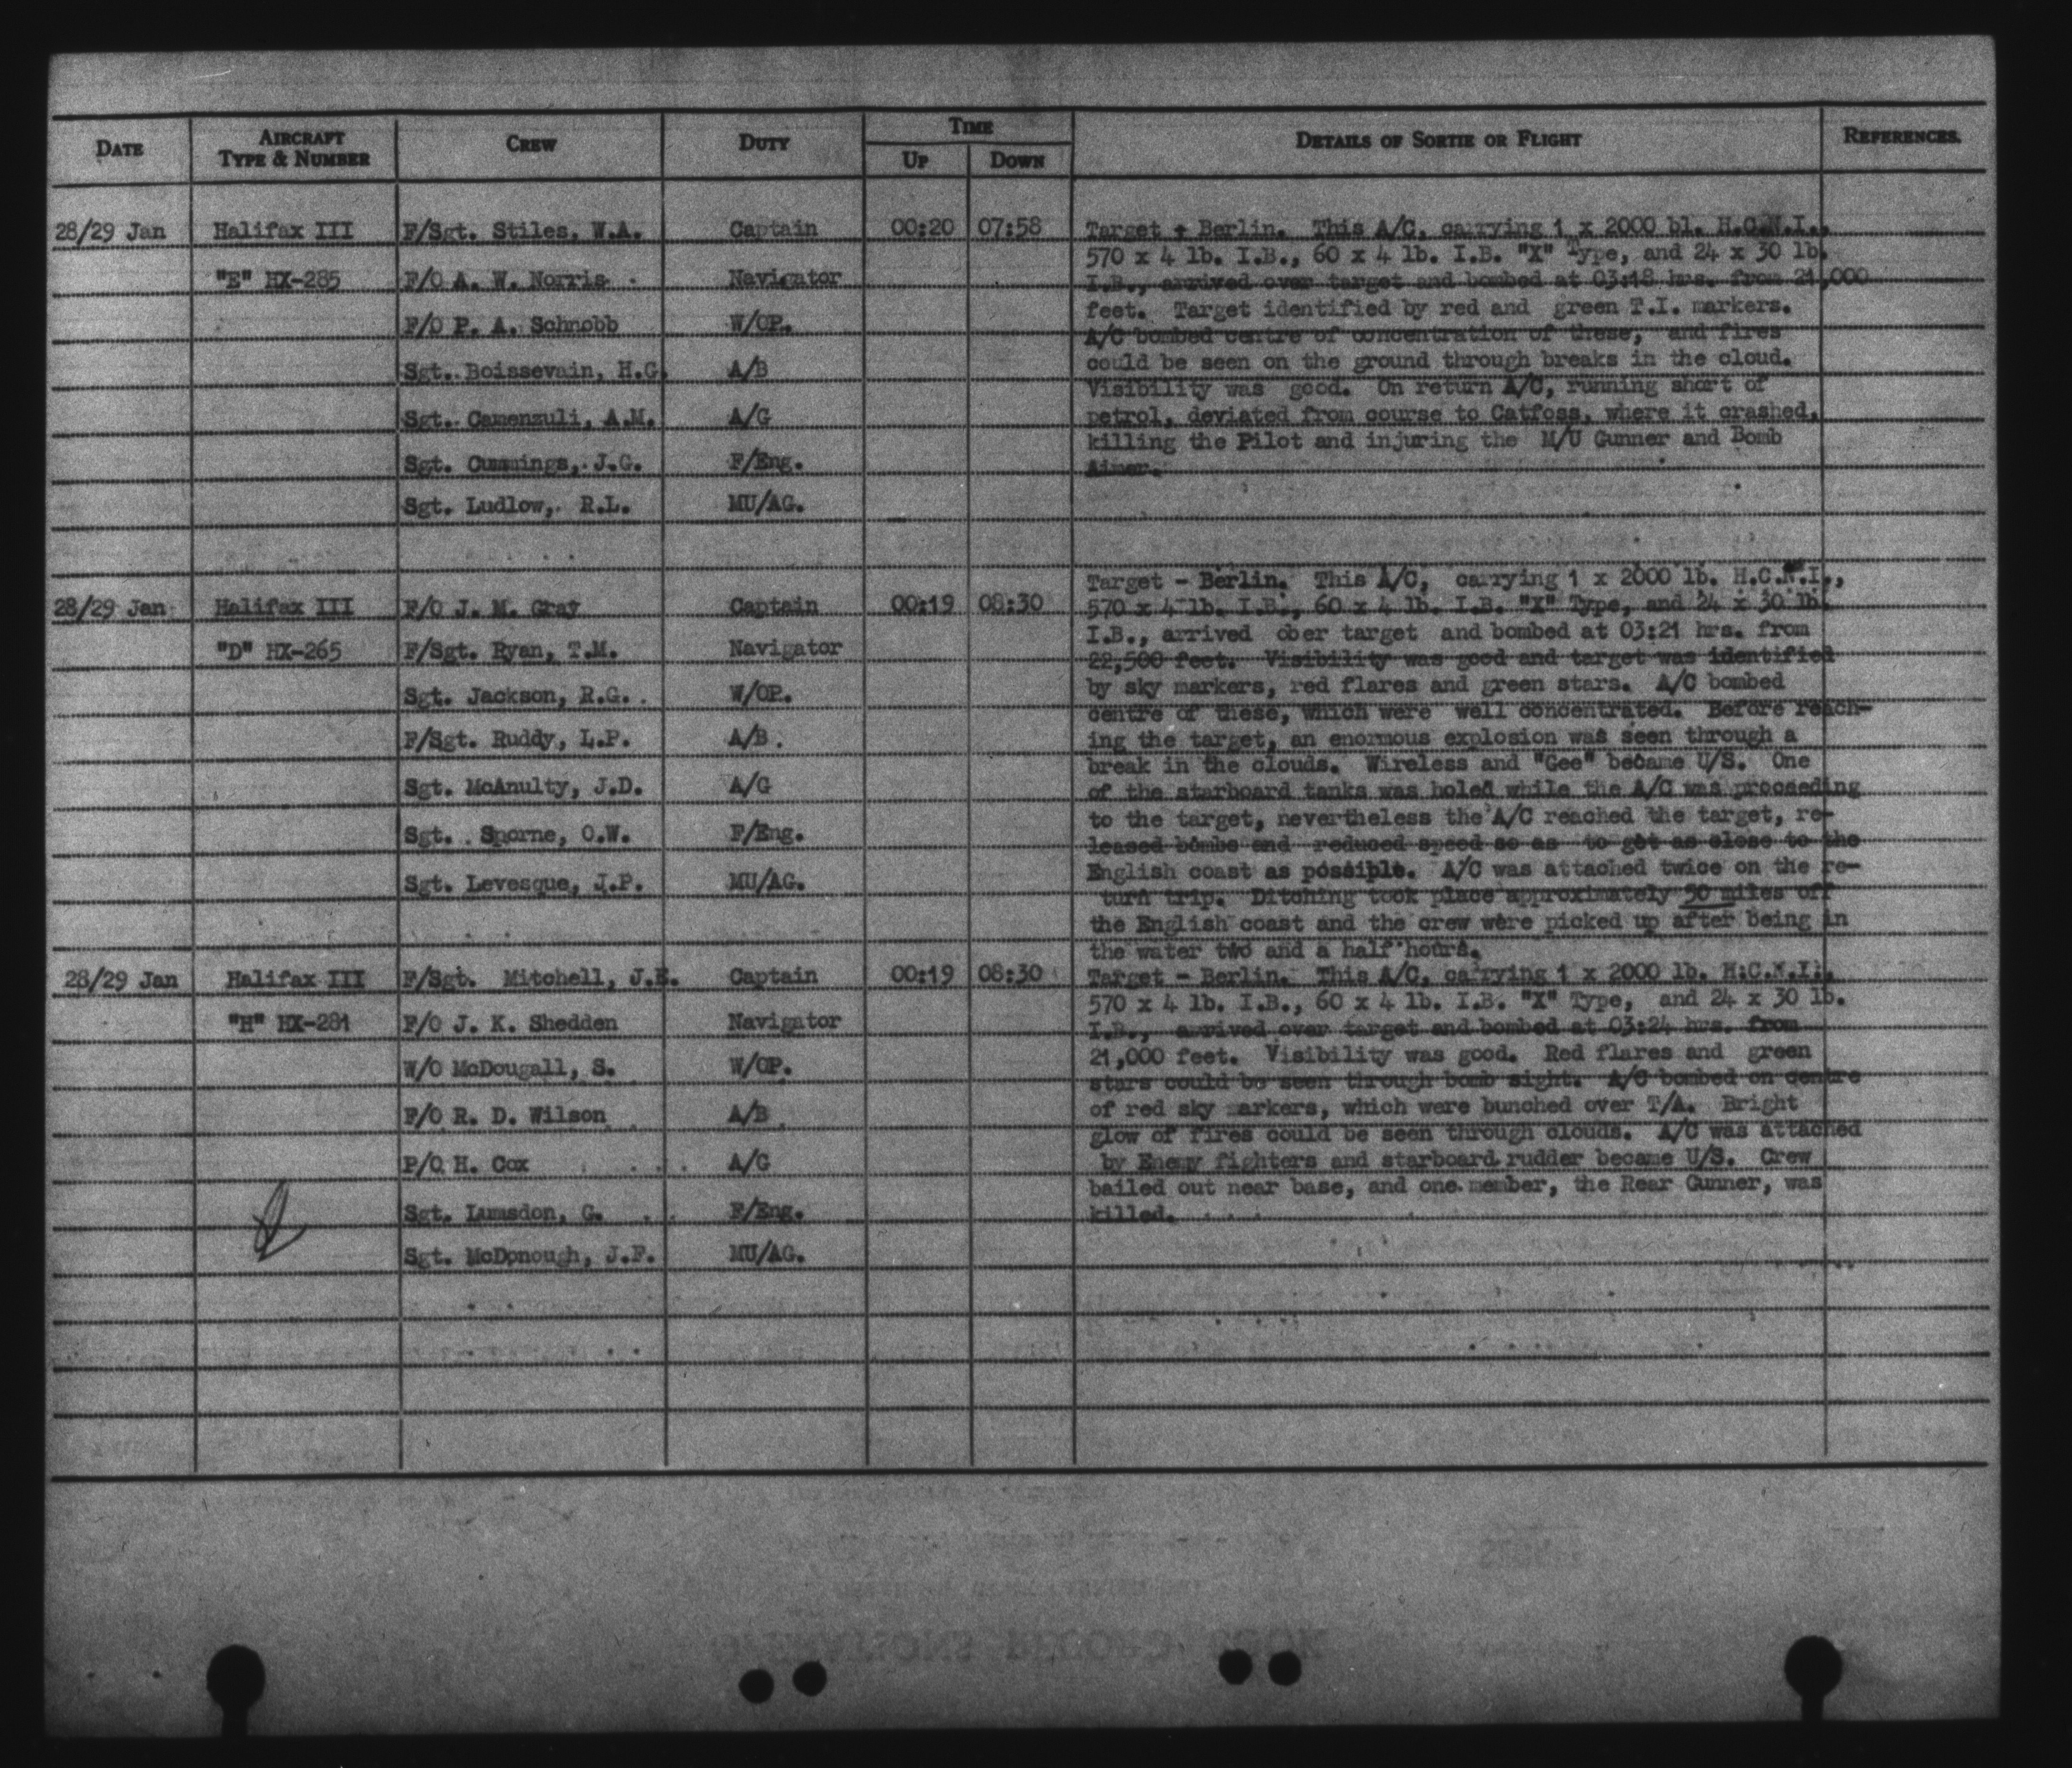 DATE AIRCRAFT TYPE & NUMBER CREW DUTY TIME UP DOWN DETAILS OF SORTIE OR FLIGHT REFERENCES.
28/29 Jan Halifax III F/Sgt. Stiles, W.A. Captain 00:20 07:58 Target - Berlin. This A/C, carrying 1 x 2000 bl. H.C.N.I.,
570 x 4 lb. I.B., 60 x 4 lb. I.B. "X" Type, and 24 x 30 lb.
"E" HX-285 F/O A. W. Norris Navigator I.B., arrived over target and bombed at 03:18 hrs. from 21,000
feet. Target identified by red and green T.I. markers.
F/O P. A. Schnobb W/OP. A/C bombed centre of concentration of these, and fires
could be seen on the ground through breaks in the cloud.
Sgt. Boissevain, H.G. A/B Visibility was good. On return A/C, running short of
Sgt. Camenzuli, A.M. A/G petrol, deviated from course to Catfoss, where it crashed,
killing the Pilot and injuring the M/U Gunner and Bomb
Sgt. Cummings, J.G. F/Eng. Aimer.
Sgt. Ludlow, R.L. MU/AG.
Target - Berlin. This A/C, carrying 1 x 2000 lb. H.C.N.I.,
28/29 Jan Halifax III F/O J. M. Gray Captain 00:19 08:30 570 x 4 lb. I.B., 60 x 4 lb. I.B. "X" Type, and 24 x 30 lb.
I.B., arrived ober target and bombed at 03:21 hrs. from
"D" HX-265 F/Sgt. Ryan, T.M. Navigator 22,500 feet. Visibility was good and target was identified
by sky markers, red flares and green stars. A/C bombed
Sgt. Jackson, R.G. W/OP. centre of these, which were well concentrated. Before reach-
F/Sgt. Ruddy, L.P. A/B. ing the target, an enormous explosion was seen through a
break in the clouds. Wireless and "Gee" became U/S. One
Sgt. McAnulty, J.D. A/G of the starboard tanks was holed while the A/C was proceeding
to the target, nevertheless the A/C reached the target, re-
Sgt. Sporne, O.W. F/Eng. leased bombs and reduced speed so as to get as close to the
English coast as possible. A/C was attached twice on the re-
Sgt. Levesque, J.P. MU/AG. turn trip. Ditching took place approximately 50 miles off
the English coast and the crew were picked up after being in
the water two and a half hours.
28/29 Jan Halifax III F/Sgt. Mitchell, J.E. Captain 00:19 08:30 Target - Berlin. This A/C, carrying 1 x 2000 lb. H.C.N.I.,
570 x 4 lb. I.B., 60 x 4 lb. I.B. "X" Type, and 24 x 30 lb.
"H" HX-281 F/O J. K. Shedden Navigator I.B., arrived over target and bombed at 03:24 hrs. from
21,000 feet. Visibility was good. Red flares and green
W/O McDougall, S. W/OP. stars could be seen through bomb sight. A/C bombed on centre
F/O R. D. Wilson A/B of red sky markers, which were bunched over T/A. Bright
glow of fires could be seen through clouds. A/C was attached
P/O H. Cox A/G by Enemy fighters and starboard rudder became U/S. Crew
bailed out near base, and one member, the Rear Gunner, was
Sgt. Lumsdon, G. F/Eng. killed.
Sgt. McDonough, J.F. MU/AG.